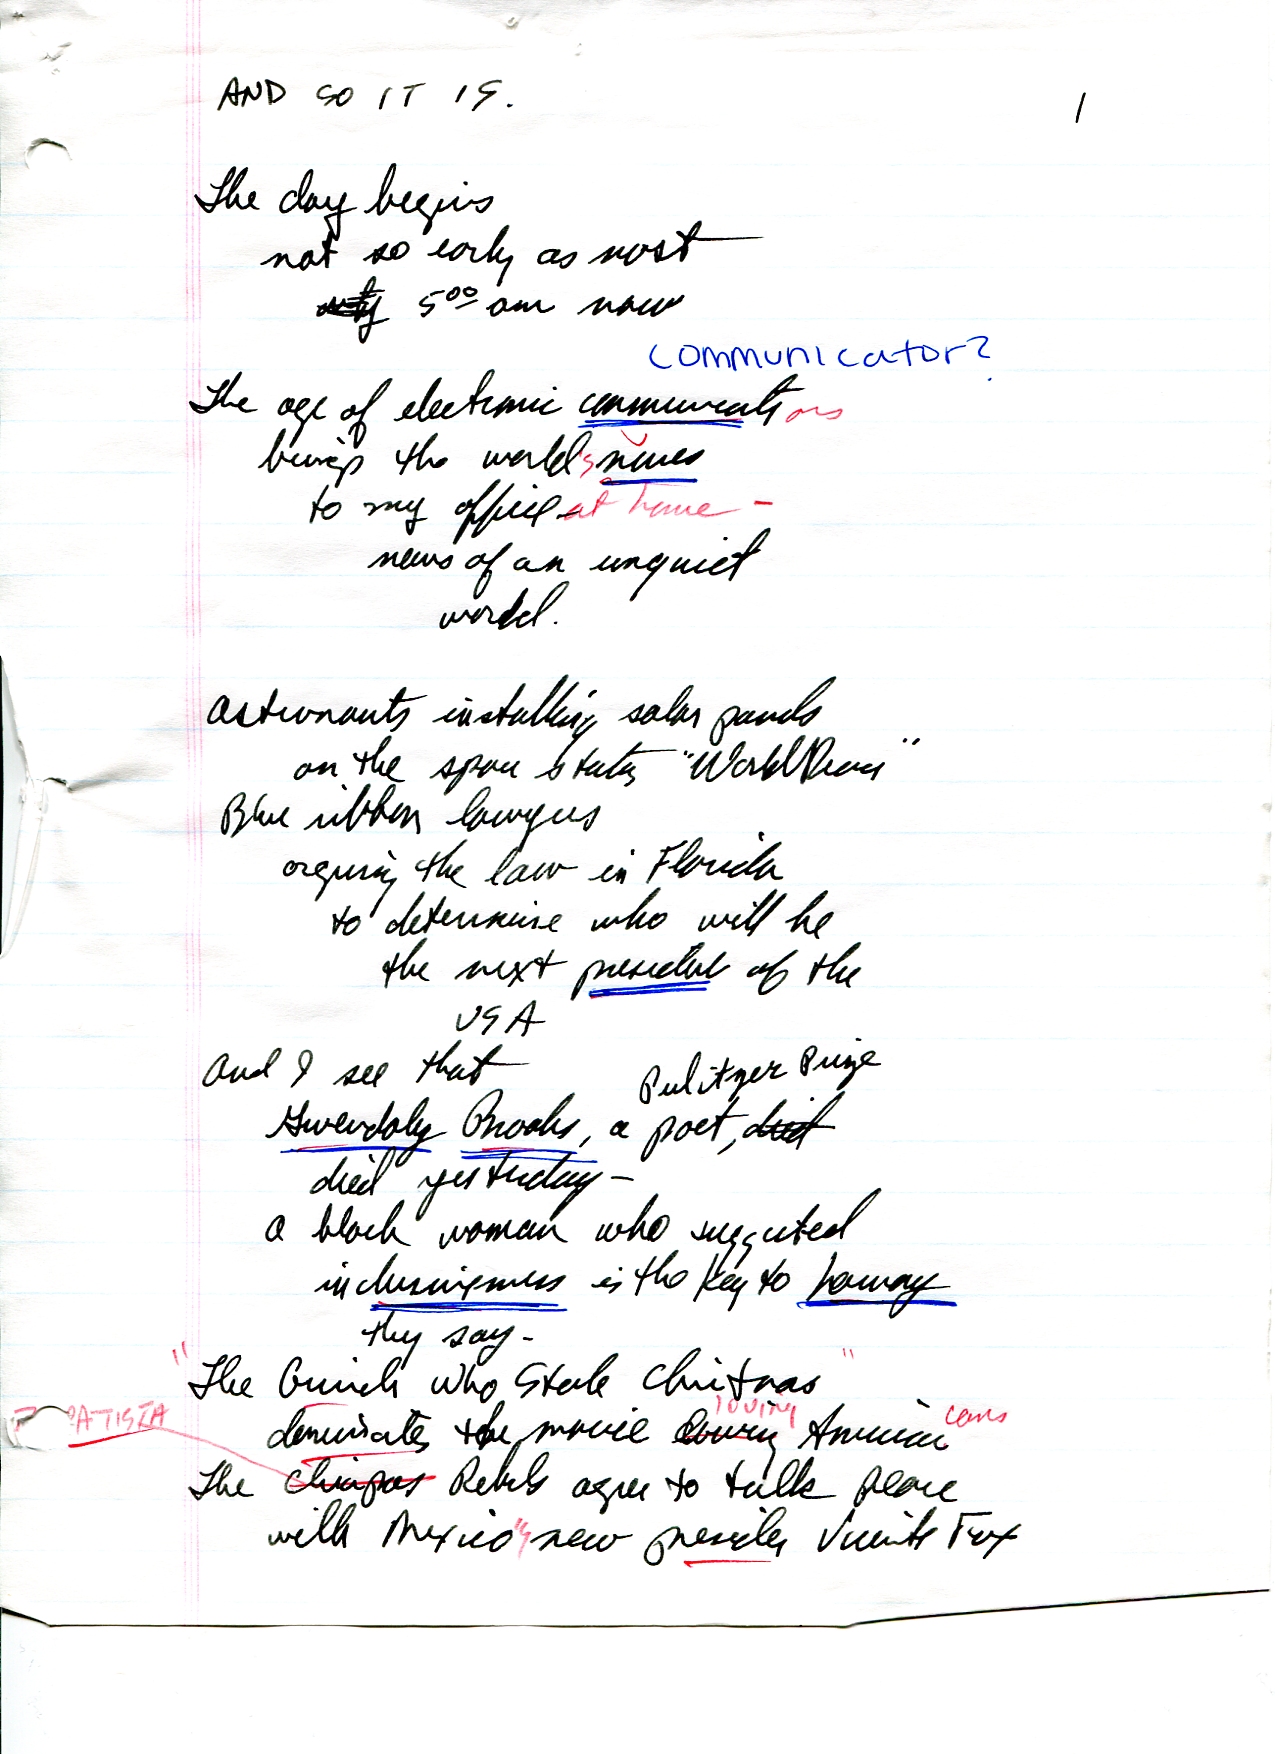 AND SO IT IS.
1
The day begins
not so early as most
5⁰⁰ am now
communicator?
The age of electronic communications
brings the world's news
to my office at home -
news of an unquiet
world.
Astronauts installing solar panels
on the space station "World"
Blue ribbon lawyers
arguing the law in Florida
to determine who will be
the next president of the
USA
And I see that
Pulitzer Prize
Gwendoly Brooks, a poet, died
died yesterday -
a black woman who suggested
inclusiveness is the key to
they say -
"The Grinch Who Stole Christmas"
loving
dominates the movie loving Americans
PATISTA
The Chiapas Rebels agree to talk peace
with Mexico's new president Vicente Fox